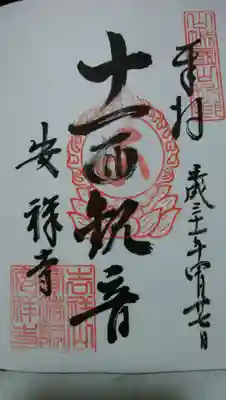 奉拝
平成三十一年四月十七日
十一面観音
安祥寺